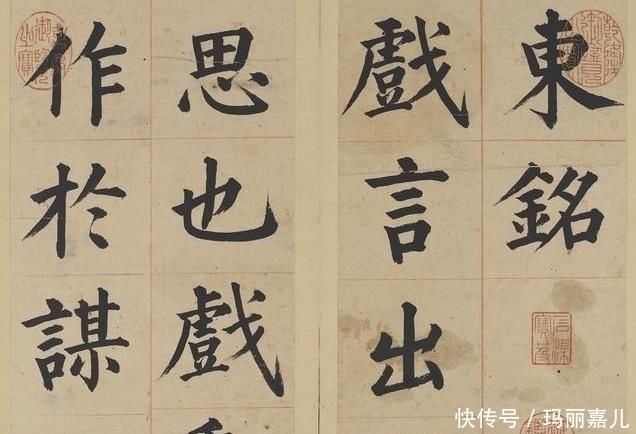 東銘
戲言出
思也戲
作於謀
快传号／玛丽嘉儿